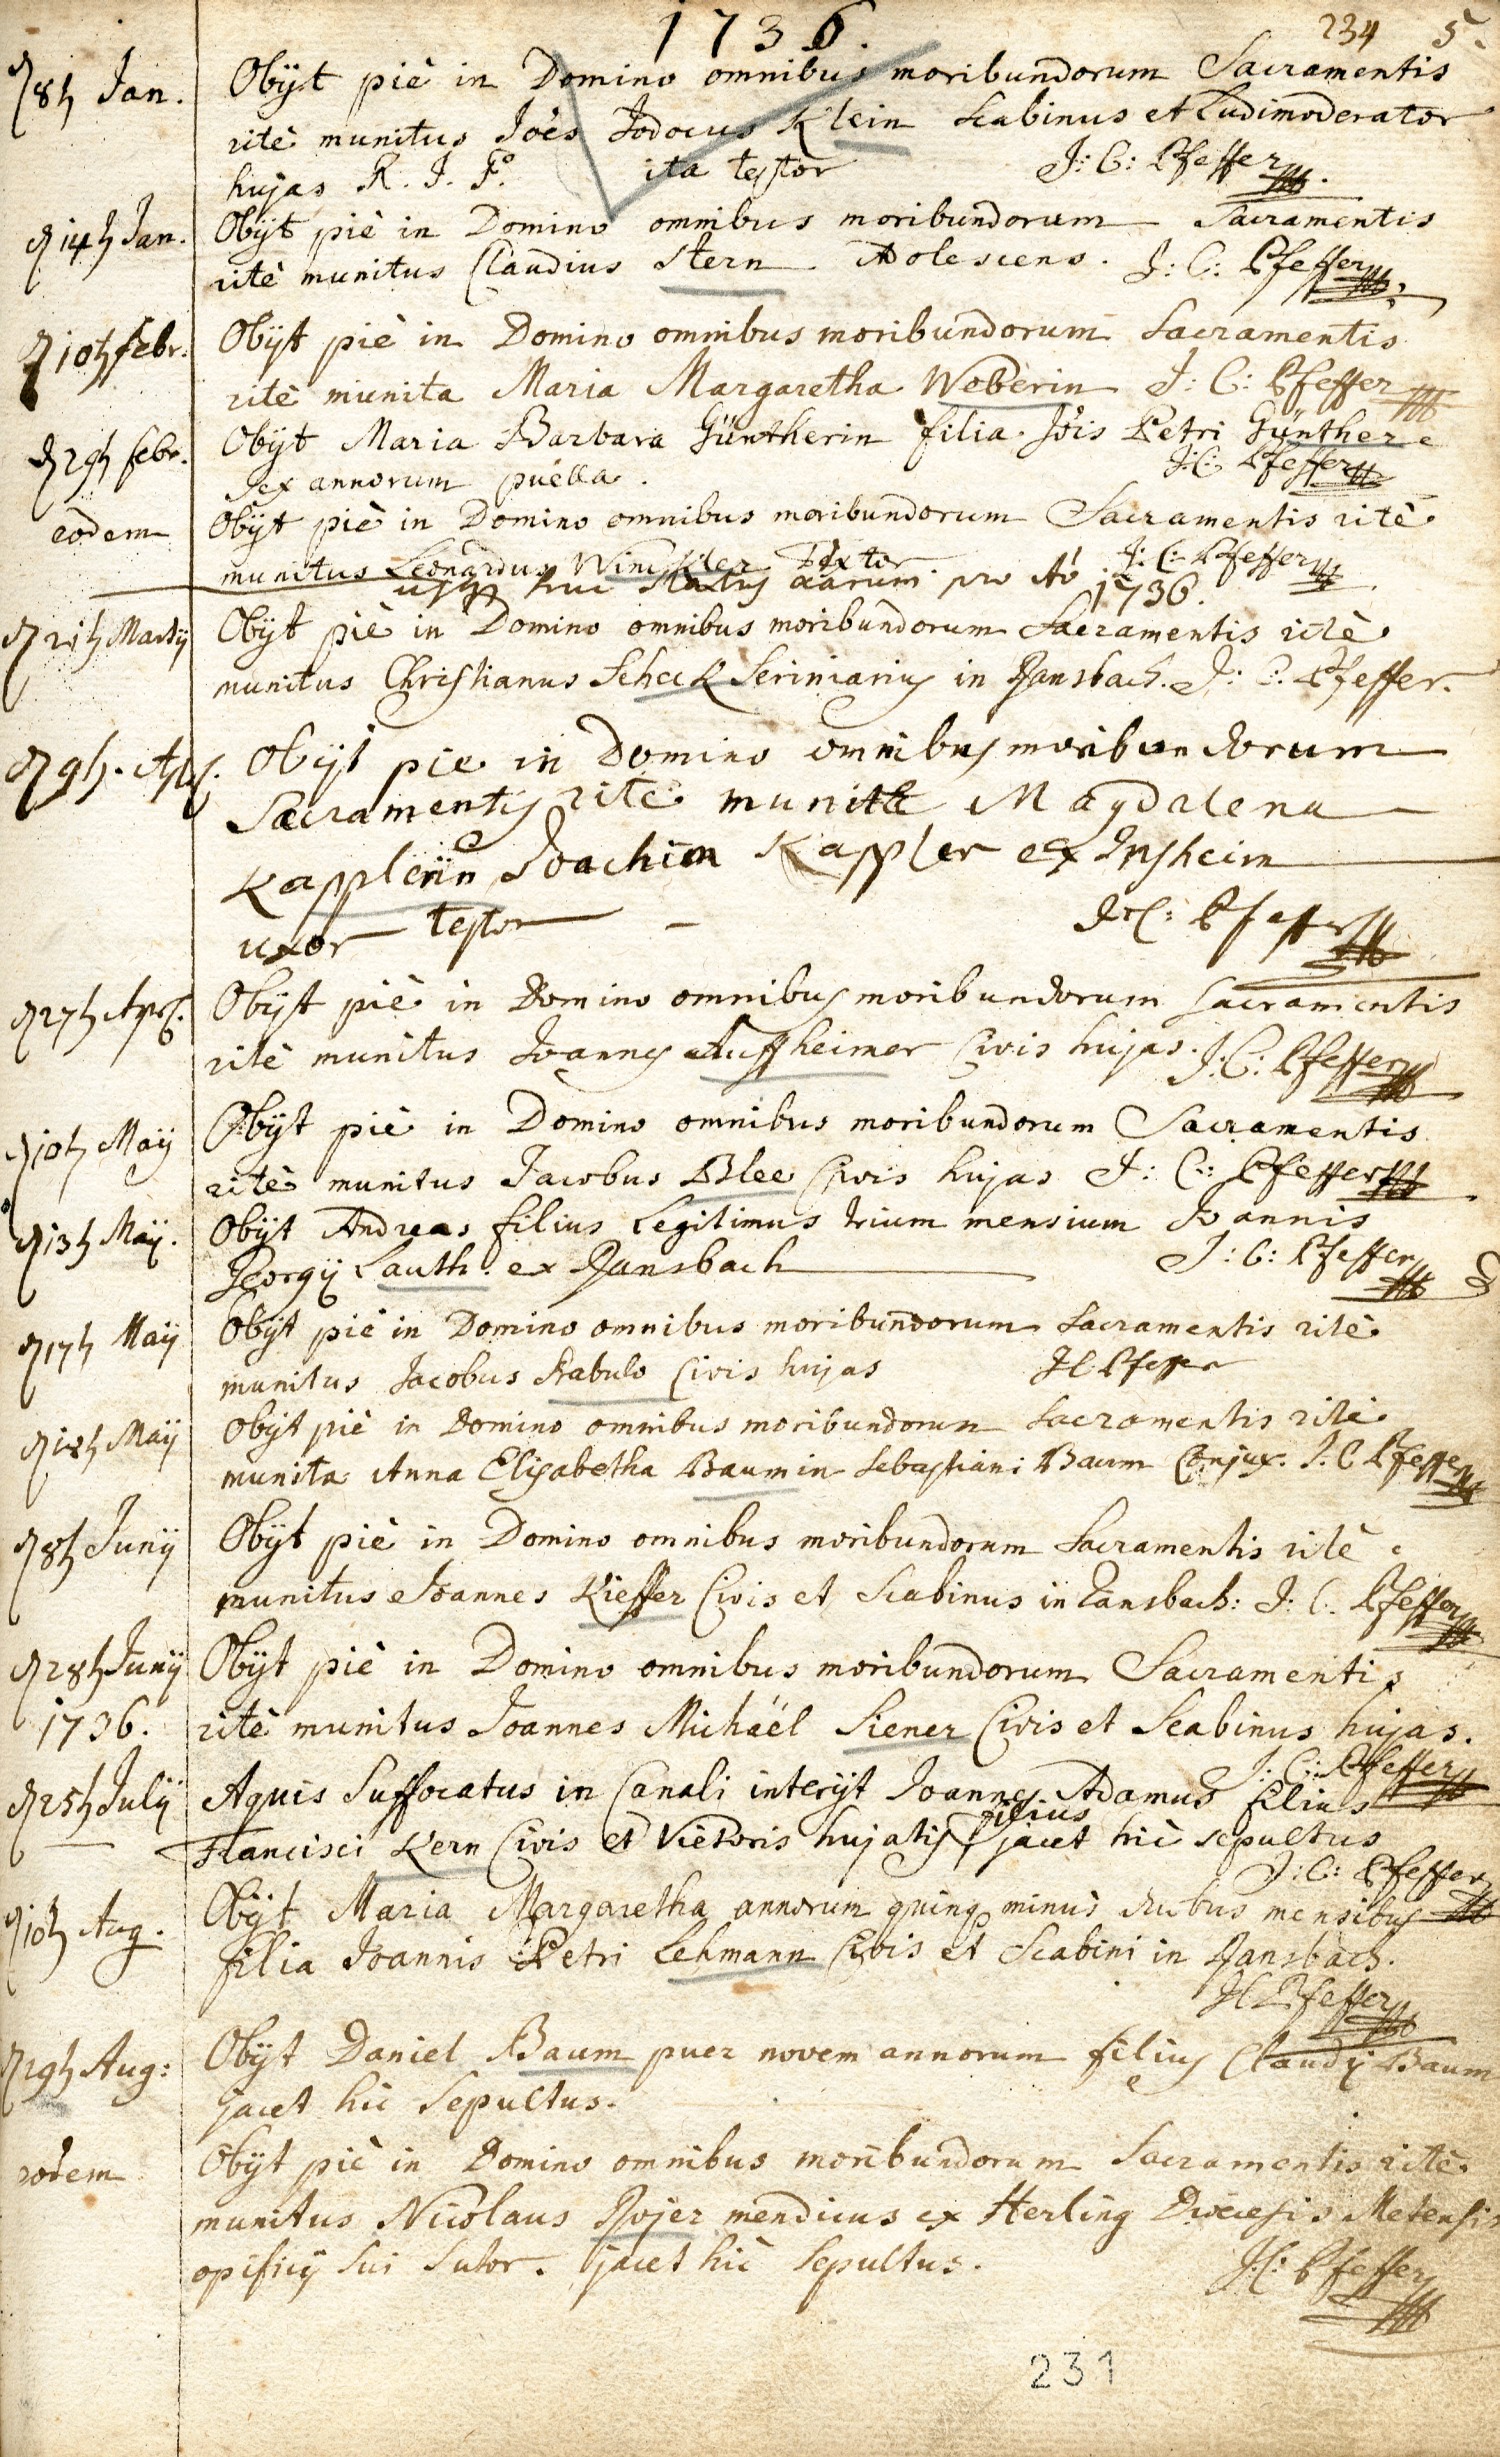 1736.
234 5.
d 8t Jan. Obijt piè in Domino omnibus moribundorum Sacramentis
ritè munitus Joês Jodocus Klein Scabinus et Ludimoderator
hujas R. I. P. ita testor J: C: Pfeffer
d 14t Jan. Obijt piè in Domino omnibus moribundorum Sacramentis
ritè munitus Claudius Stern Adolescens. J: C: Pfeffer
d 10t febr. Obijt piè in Domino omnibus moribundorum Sacramentis
ritè munita Maria Margaretha Weberin J: C: Pfeffer
d 29t febr. Obijt Maria Barbara Güntherin filia Jois Petri Günther
sex annorum puella. J: C: Pfeffer
eodem Obijt piè in Domino omnibus moribundorum Sacramentis ritè
munitus Leonardus Winckler Textor J: C: Pfeffer
usq huc pro Aô 1736.
d 21t Martij Obijt piè in Domino omnibus moribundorum Sacramentis ritè
munitus Christianus Scheck Scriniarius in Ransbach. J: C: Pfeffer.
d 9t. Apl. Obijt pie in Domino omnibus moribundorum
Sacramentis ritè munita Magdalena
Kapplerin Joachim Kappler ex Insheim
uxor testor J: C: Pfeffer
d 27t Apl. Obijt piè in Domino omnibus moribundorum Sacramentis
ritè munitus Joannes Auffheimer Civis hujas. J: C: Pfeffer
d 10t Maij Obijt piè in Domino omnibus moribundorum Sacramentis
ritè munitus Jacobus Blee Civis hujas J: C: Pfeffer
d 13t Maij. Obijt Andreas filius Legitimus trium mensium Joannis
Georgij Lauth. ex Ransbach J: C: Pfeffer
d 17t Maij Obijt piè in Domino omnibus moribundorum Sacramentis ritè
munitus Jacobus Rabulo Civis hujas JC Pfeffer
d 18t Maij Obijt piè in Domino omnibus moribundorum Sacramentis ritè
munita Anna Elisabetha Baumin Sebastiani Baum Conjux. J. C Pfeffer
d 8t Junij Obijt piè in Domino omnibus moribundorum Sacramentis ritè
munitus Joannes Kieffer Civis et Scabinus in Ransbach: J: C. Pfeffer
d 28t Junij Obijt piè in Domino omnibus moribundorum Sacramentis
1736. ritè munitus Joannes Michäel Siener Civis et Scabinus hujas.
J: C: Pfeffer
d 25t Julij Aquis Suffocatus in Canali interijt Joannes Adamus filius
Francisci Kern Civis et Vietoris hujatis filius jacet hic sepultus
J: C: Pfeffer
d 10t Aug. Obijt Maria Margaretha annorum quinq minus duobus mensibus
filia Joannis Petri Lehmann Civis et Scabini in Ransbach.
JC Pfeffer
d 29t Aug: Obijt Daniel Baum puer novem annorum filius Claudij Baum
jacet hic Sepultus.
eodem Obijt piè in Domino omnibus moribundorum Sacramentis ritè
munitus Nicolaus Rojer mendicus ex Herling Dioecesis Metensis
opificij sui Sutor. jacet hic Sepultus. J: C: Pfeffer
231